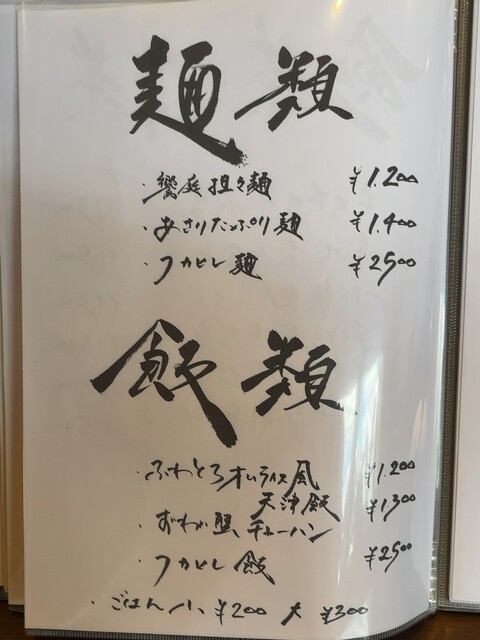 麺類
・饗庭担々麺 ¥1.200
・あさりたっぷり麺 ¥1.400
・フカヒレ麺 ¥2500
飯類
・ふわとろオムライス風 ¥1.200
天津飯
・ずわい蟹チャーハン ¥1300
・フカヒレ飯 ¥2500
・ごはん 小 ¥200 大 ¥300